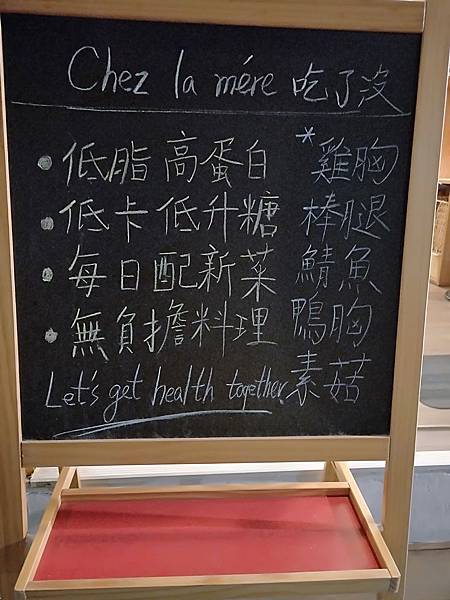 Chez la mére 吃了沒
• 低脂 高蛋白
• 低卡低升糖
• 每日配新菜
• 無負擔料理
Let's get health together.
*雞胸
棒腿
鯖魚
鴨胸
素菇